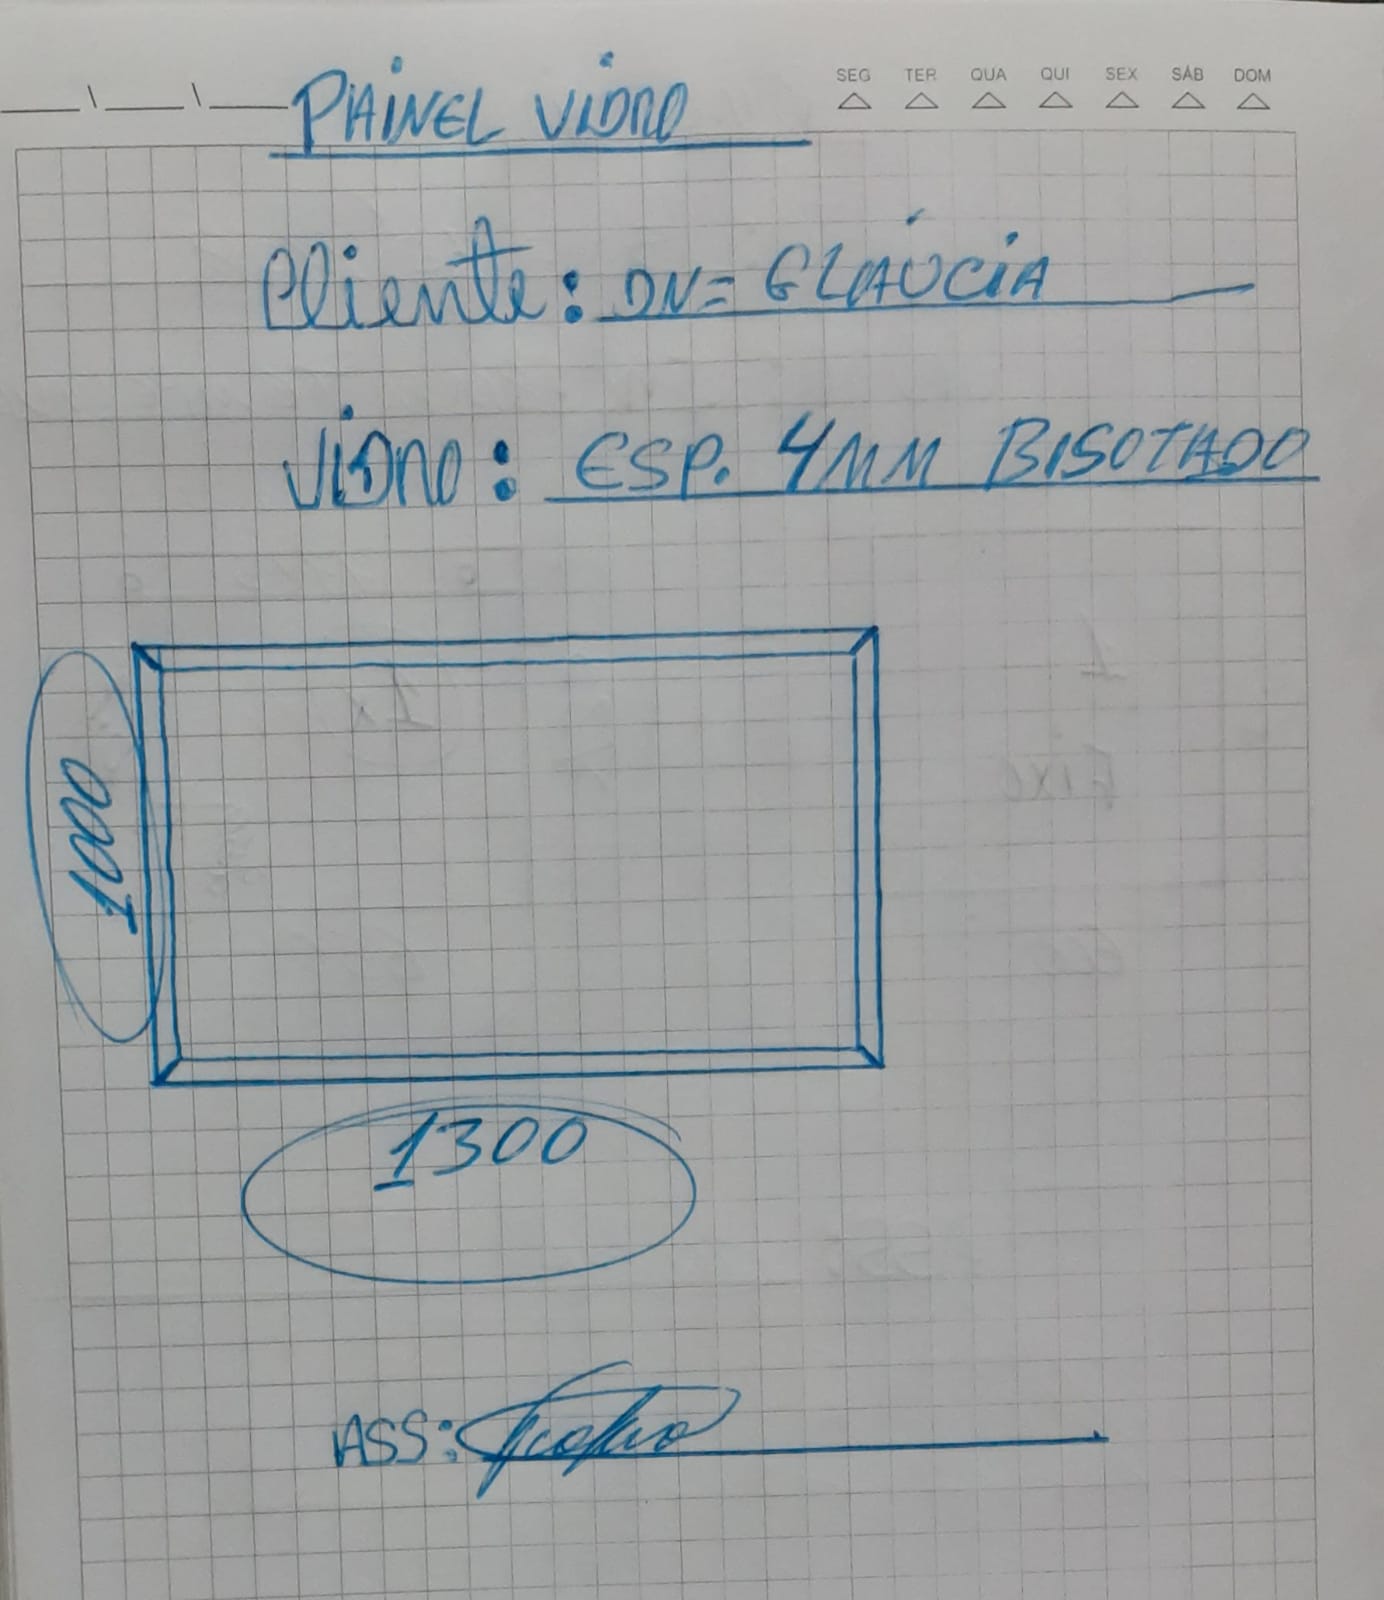 SEG TER QUA QUI SEX SÁB DOM
PAINEL VIDRO
Cliente: DN= GLAÚCIA
VIDRO: ESP. 4MM BISOTADO
1000
1300
ASS: